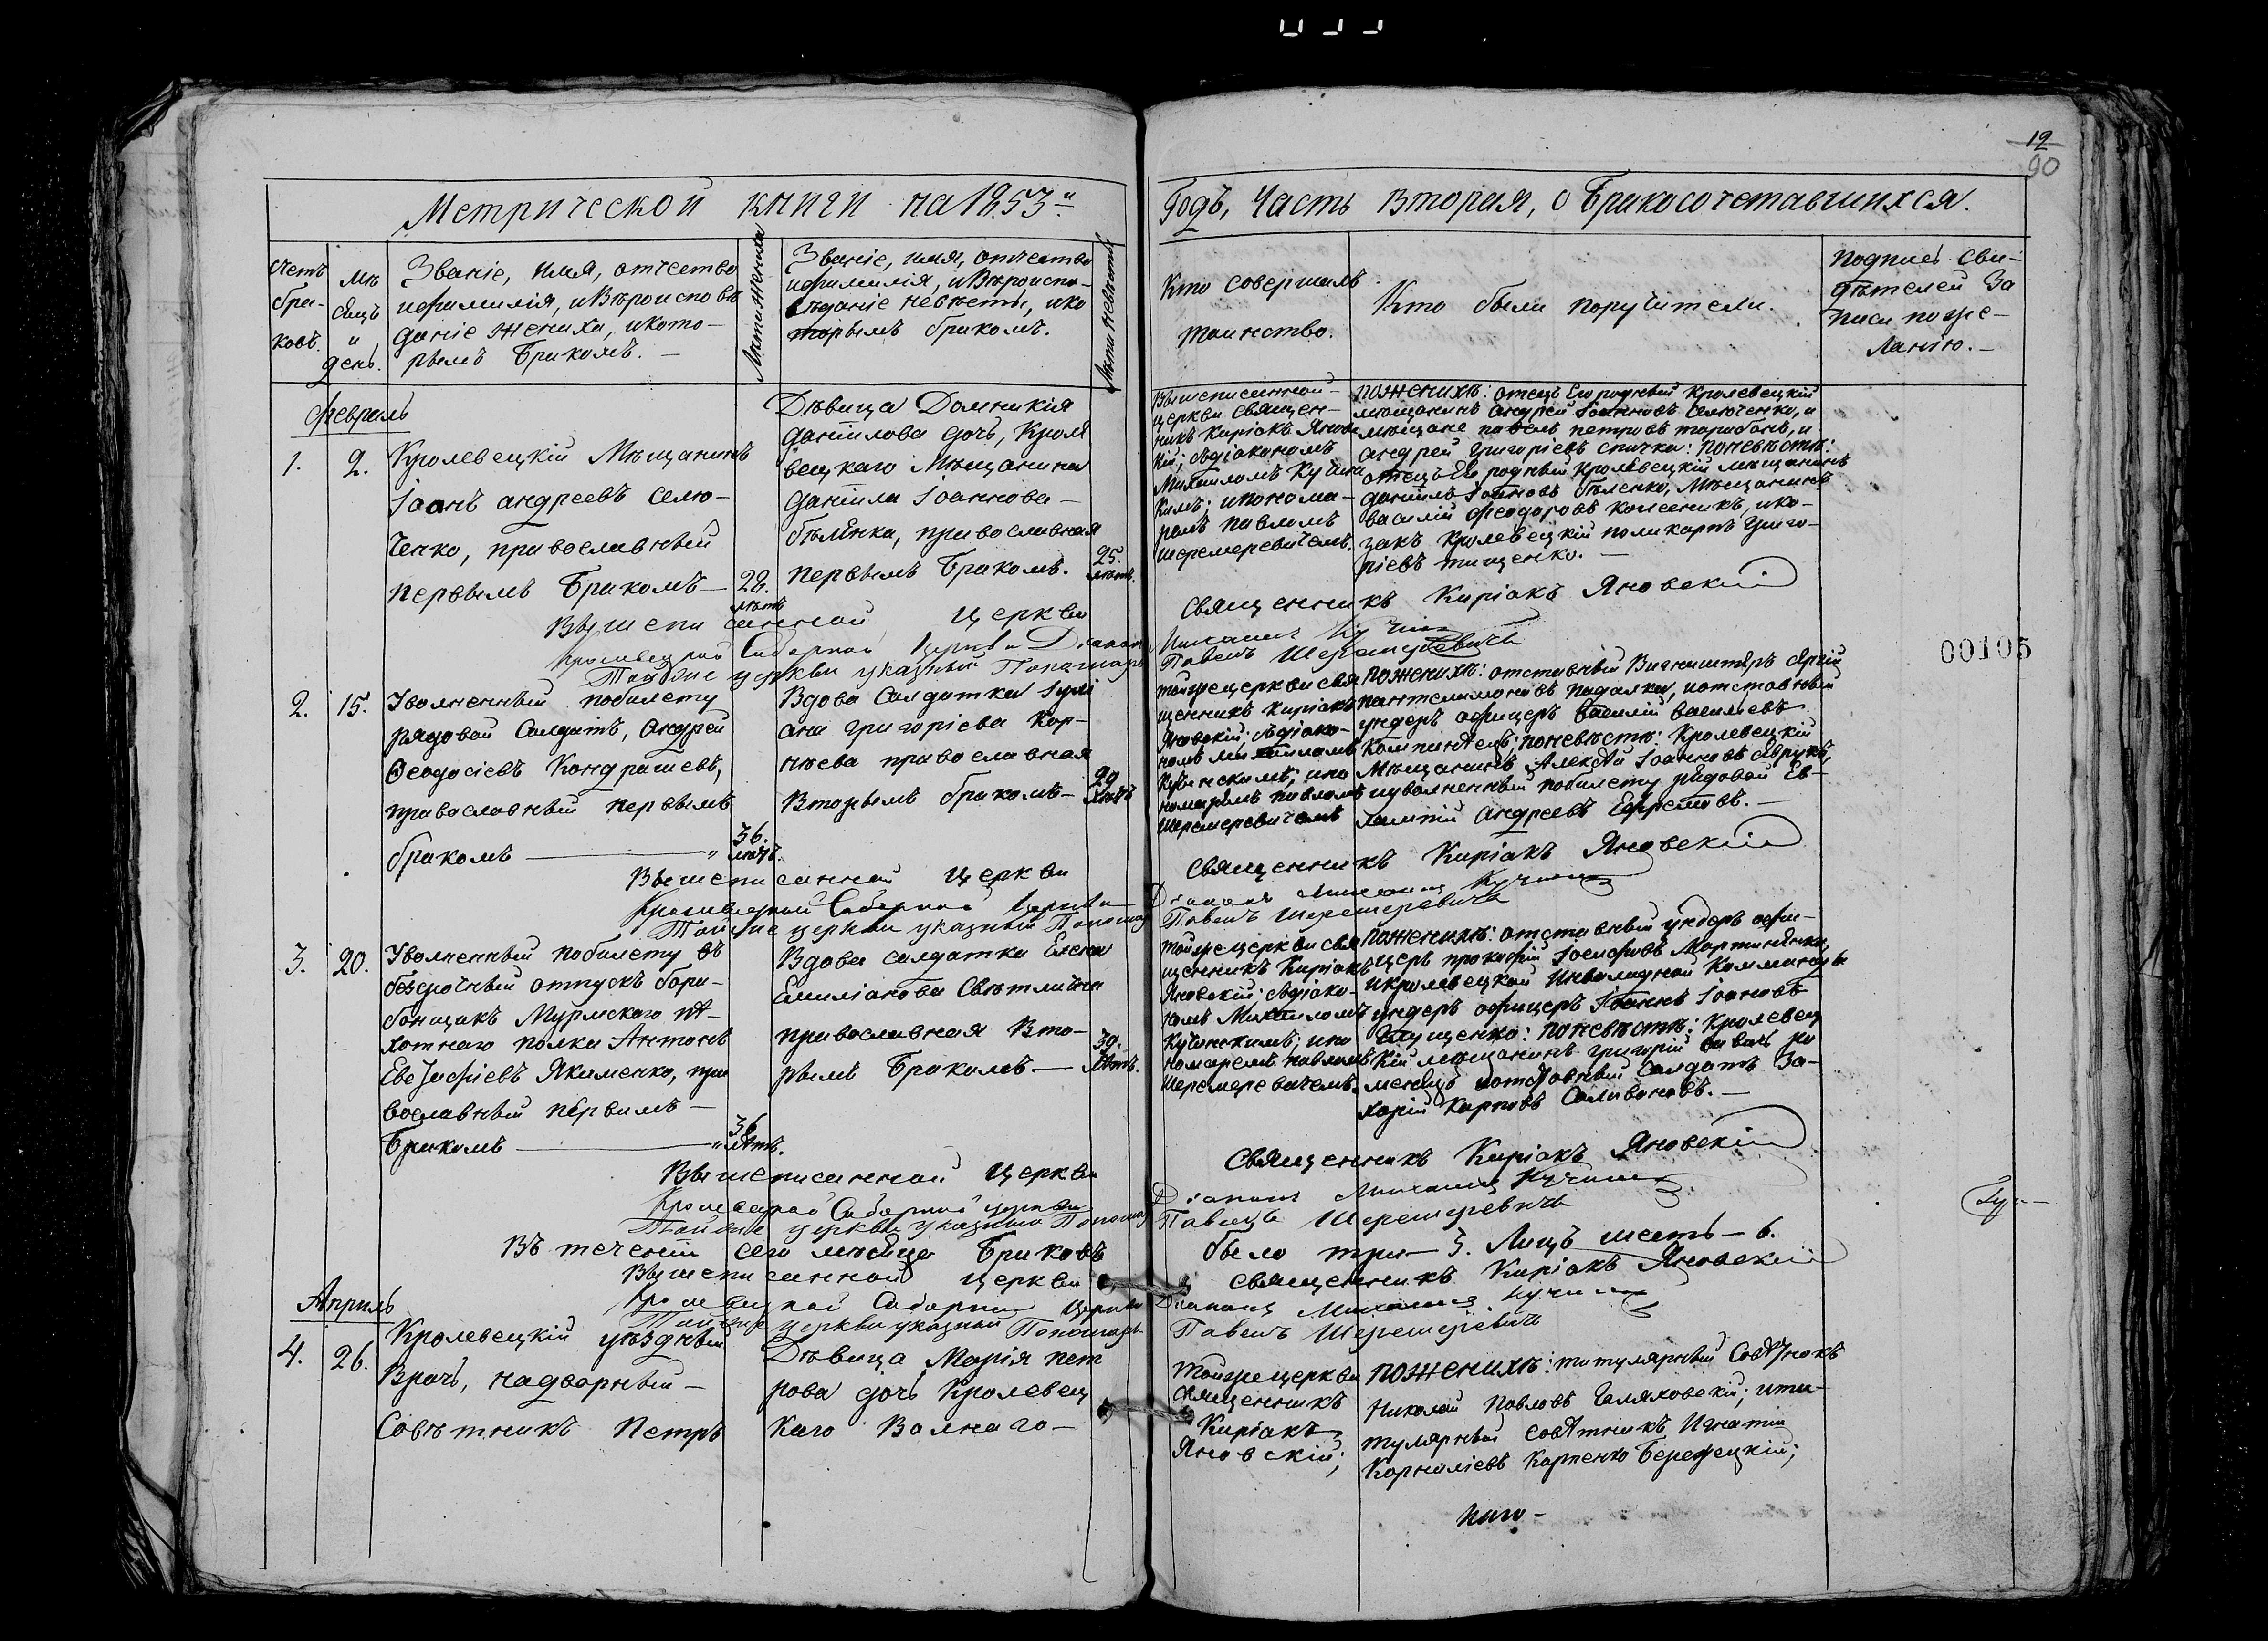 12
90
Метрической книги на 1853й
Годъ, Часть Вторая, о Бракосочетавшихся.
Счетъ браковъ.
Мѣсяцъ и день.
Званіе, имя, отчество
ифамилія, иВѣроисповѣ
даніе жениха, икото-
рымъ Бракомъ. —
Лѣта жениха
Званіе, имя, отчество
ифамилія, иВѣроиспо-
вѣданіе невѣсты, ико
торымъ бракомъ.
Лѣта невѣсты
Кто совершалъ
таинство.
Кто были поручители.
Подпись сви-
дѣтелей За
писи поже-
ланію. —
Февраль
1.
2.
Кролевецкій Мѣщанинъ
Іоанъ андреевъ Селю-
ченко, православный
первымъ Бракомъ —
28.
лѣтъ
Дѣвица Домникія
даніилова дочь, Кроле
вецкаго Мѣщанина
даніила Іоаннова —
бѣленка, православная
первымъ Бракомъ.
25.
лѣтъ.
Вышеписанной
церкви Священ-
никъ Киріакъ Янов
кій; сдіакономъ
Михаиломъ Кучин
кимъ; ипонома-
ремъ павломъ
шеремеревичемъ.
поженихѣ: отецъ Его родный Кролевецкій
мѣщанинъ андрей Іоанновъ Селюченко, и
мѣщане павелъ петровъ тарабанъ, и
андрей григоріевъ спичка: поневѣстѣ:
отецъ Ея родный Кролевецкій мѣщанинъ
даніилъ Іоанновъ бѣленко, Мѣщанинъ
василій феодоровъ , ико-
закъ Кролевецкій поликарпъ григо-
ріевъ тищенко. —
Вышеписанной Церкви
священникъ Киріакъ Яновскій
Кролевецкой Соборной Церкви Діаконъ
Михаилъ
Тойже церкви указный Пономарь
Павелъ Шеремеревичъ
00105
2.
15.
Уволненный побилету
рядовой Солдатъ, Андрей
Ѳеодосіевъ Кондрашевъ,
православный первымъ
бракомъ — "
36.
лѣтъ.
Вдова Солдатка Іулі
ана григоріева Кор-
нѣева православная
Вторымъ бракомъ —
29
лѣтъ
тойжецеркви свя
щенникъ Киріакъ
Яновскій; сдіако-
номъ михаиломъ
Кучинскимъ; ипо
номаремъ павломъ
шеремеревичемъ
поженихѣ: отставный сергій
пантелимоновъ падалка, иотставный
ундеръ офицеръ василій васильевъ
; поневѣстѣ: Кролевецкій
Мѣщанинъ Алексѣй Іоанновъ ,
иуволненный побилету рядовой Ев-
андреевъ Ефремовъ. —
Вышеписанной Церкви
священникъ Киріакъ Яновскій
Кролевецкой Соборной Церкви
Діаконъ Михаилъ
Тойже церкви указный Пономарь
Павелъ Шеремеревичъ
3.
20.
Уволненный побилету въ
безсрочный отпускъ бара-
банщикъ Муромскаго пѣ-
хотнаго полка Антонъ
Якименко, пра
вославный первымъ —
Бракомъ — "
36
лѣтъ.
Вдова солдатка Елена
Емиліанова Свѣтличная
православная Вто-
рымъ Бракомъ —
39.
лѣтъ.
тойжецеркви свя
щенникъ Киріакъ
Яновскій; сдіако-
номъ Михаиломъ
Кучинскимъ; ипо
номаремъ павломъ
шеремеревичемъ.
поженихѣ: отставный ундеръ офи-
церъ прокофій Іосифовъ Мартиненко,
икролевецкой Инвалидной Комманды
ундеръ офицеръ Іоаннъ Іоановъ
Глущенко: поневѣстѣ: Кролевец
кій мѣщанинъ григорій ро
менецъ иотставный Солдатъ За-
харій Карповъ Саливоновъ. —
Вышеписанной Церкви
священникъ Киріакъ Яновскій
Кролевецкой Соборной церкви
Діаконъ Михаилъ
Тойже церкви указный Пономарь
Павелъ Шеремеревичъ
Въ теченіи сего мѣсяца Браковъ
было три — 3. Лицъ шесть — 6.
Вышеписанной Церкви
священникъ Киріакъ Яновскій
Кролевецкой Соборной Церкви
Діаконъ Михаилъ
Тойже церкви указный Пономарь
Павелъ Шеремеревичъ
Апрѣль
4.
26.
Кролевецкій уѣздный
Врачъ, надворный —
Совѣтникъ Петръ
Дѣвица Марія пет
рова дочь Кролевец
каго Волнаго —
тойжецеркви
священникъ
Киріакъ
Яновскій;
поженихѣ: титулярный Совѣтникъ
Николай Павловъ ; ити-
тулярный совѣтникъ Игнатій
Корниліевъ Карпенко Бережецкій;